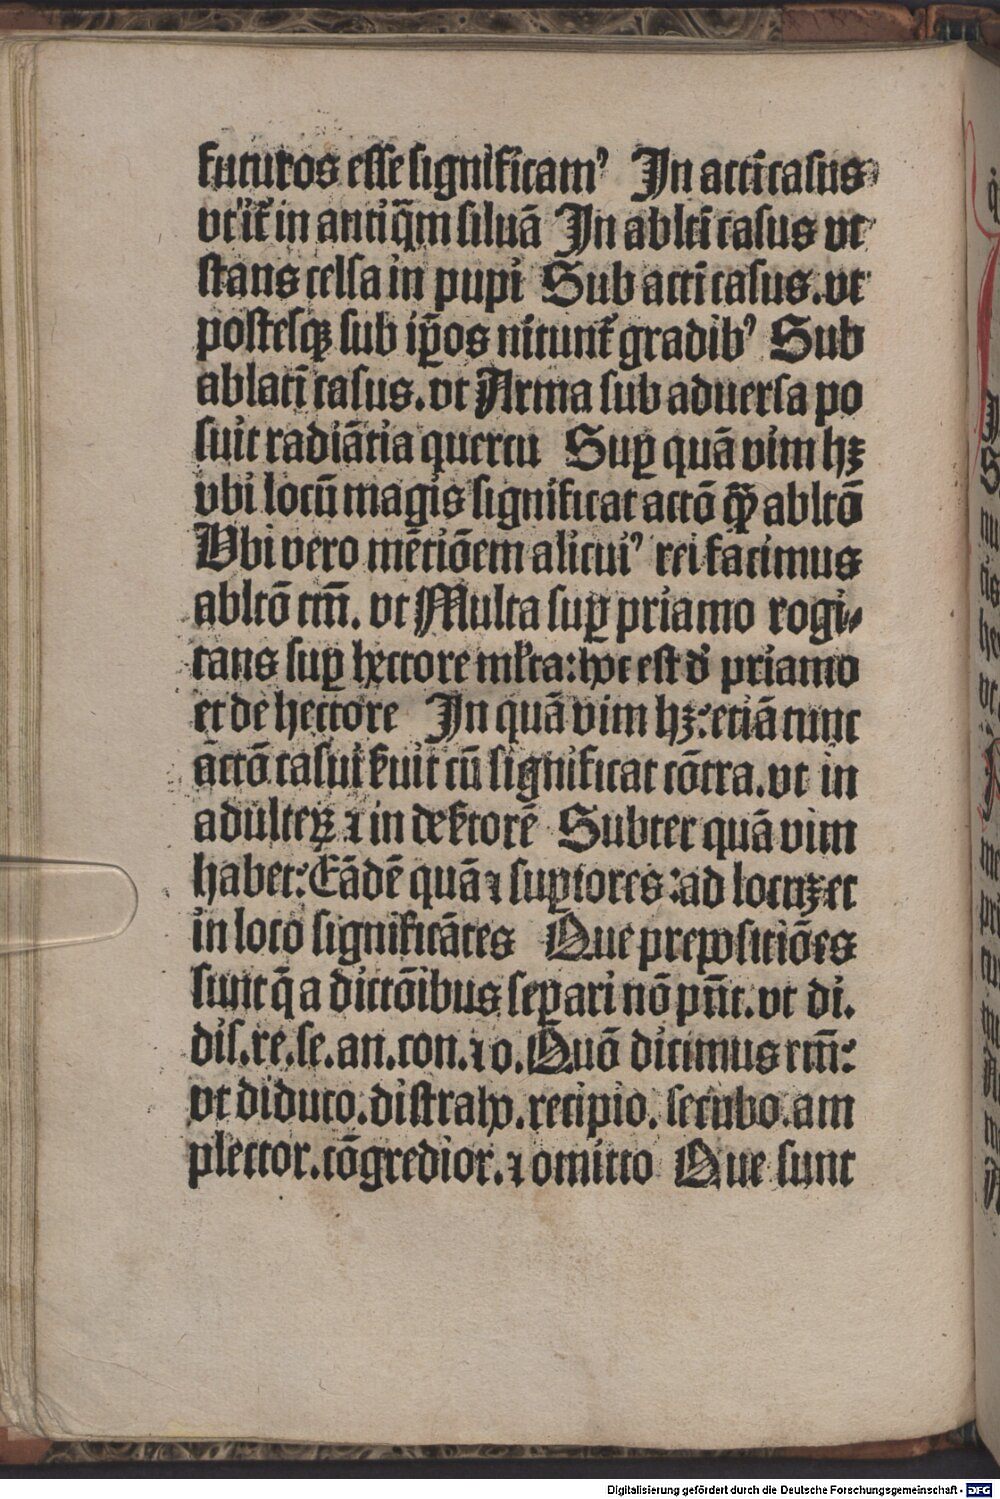 futuros esse significamꝰ In acc̄i casus
vt it᷑ in antiq̄m siluā In ablt̄i casus vt
stans celsa in pupi Sub acc̄i casus.vt
postesqꝫ sub ip̄os nitunt᷑ gradibꝰ Sub
ablatī casus.vt Arma sub aduersa po
suit radiātia quercu Suꝑ quā vim hꝫ
vbi locū magis significat acc̄o q̄ꝫ abltō
Vbi vero mētiōem alicuiꝰ rei facimus
abltō tm̄. vt Multa suꝑ priamo rogi⸗
tans suꝑ hectore ml̓ta: hoc est d̓ priamo
et de hectore In quā vim hꝫ: etiā tunc
āctō casui s̓uit cū significat cōtra.vt in
adulteꝝ ⁊ in des̓torē Subter quā vim
habet: Eādē quā ⁊ suꝑiores: ad locuꝫ et
in loco significātes Que prepositiōes
sunt q̄ a dictōibus seꝑari nō pn̄t.vt di.
dis.re.se.an.con.⁊ o. Quō dicimus em̄:
vt diduco.distraho.recipio. secubo.am
plector.cōgredior.⁊ omitto Que sunt
Digitalisierung gefördert durch die Deutsche Forschungsgemeinschaft - DFG